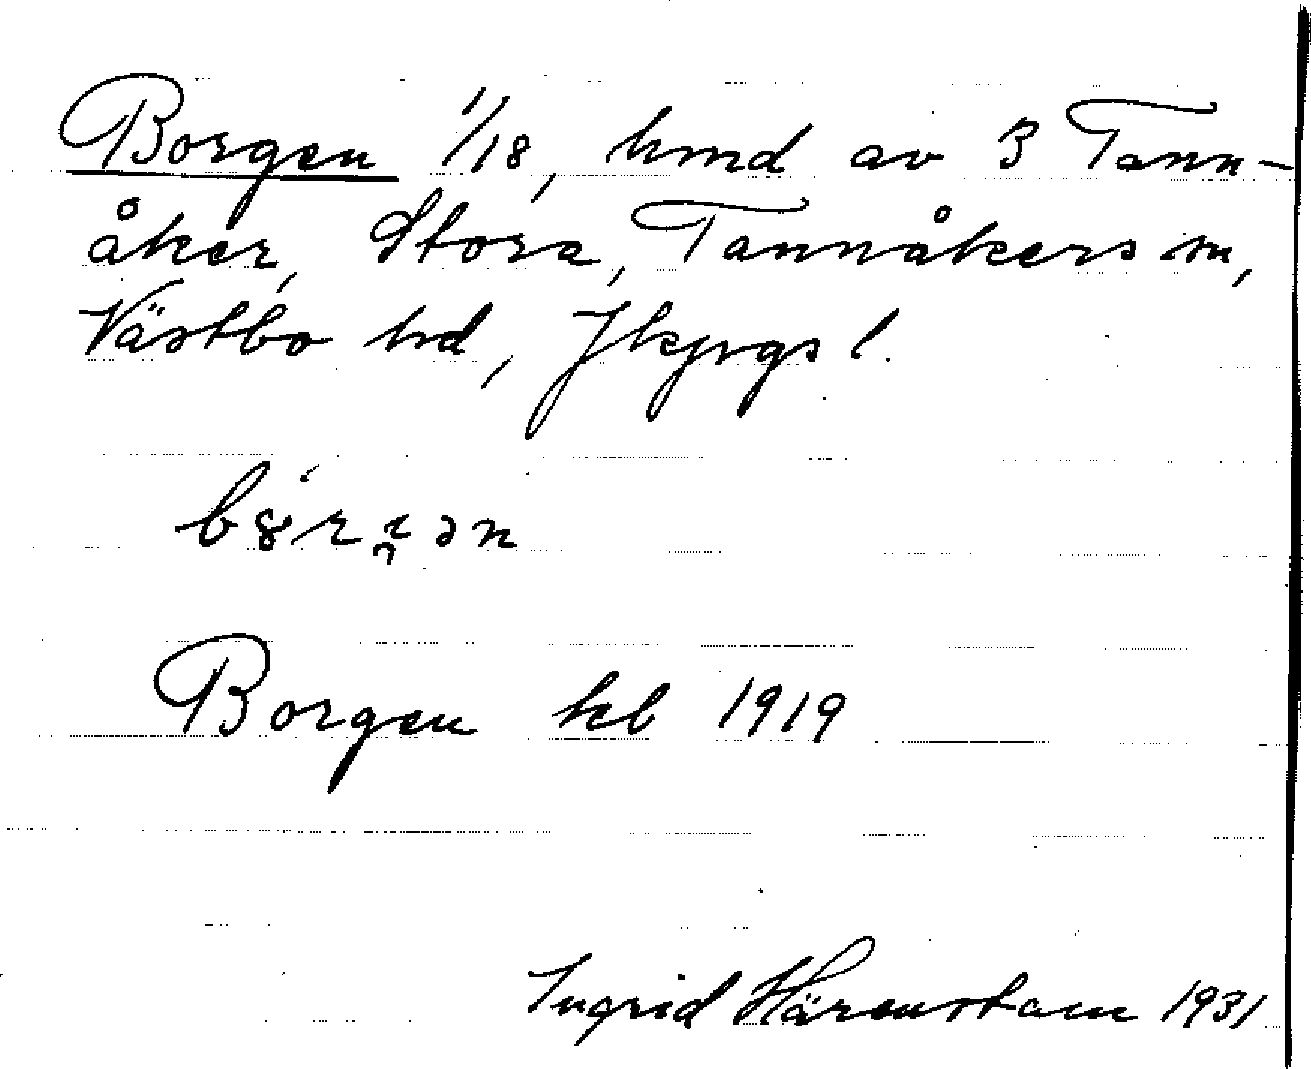 Borgen 1/18, hmd av 3 Tann-
åker, Stora, Tannåkers sn,
Västbo hd, Jkpgs l.
Borgen kb 1919
Ingrid Härenstam 1931